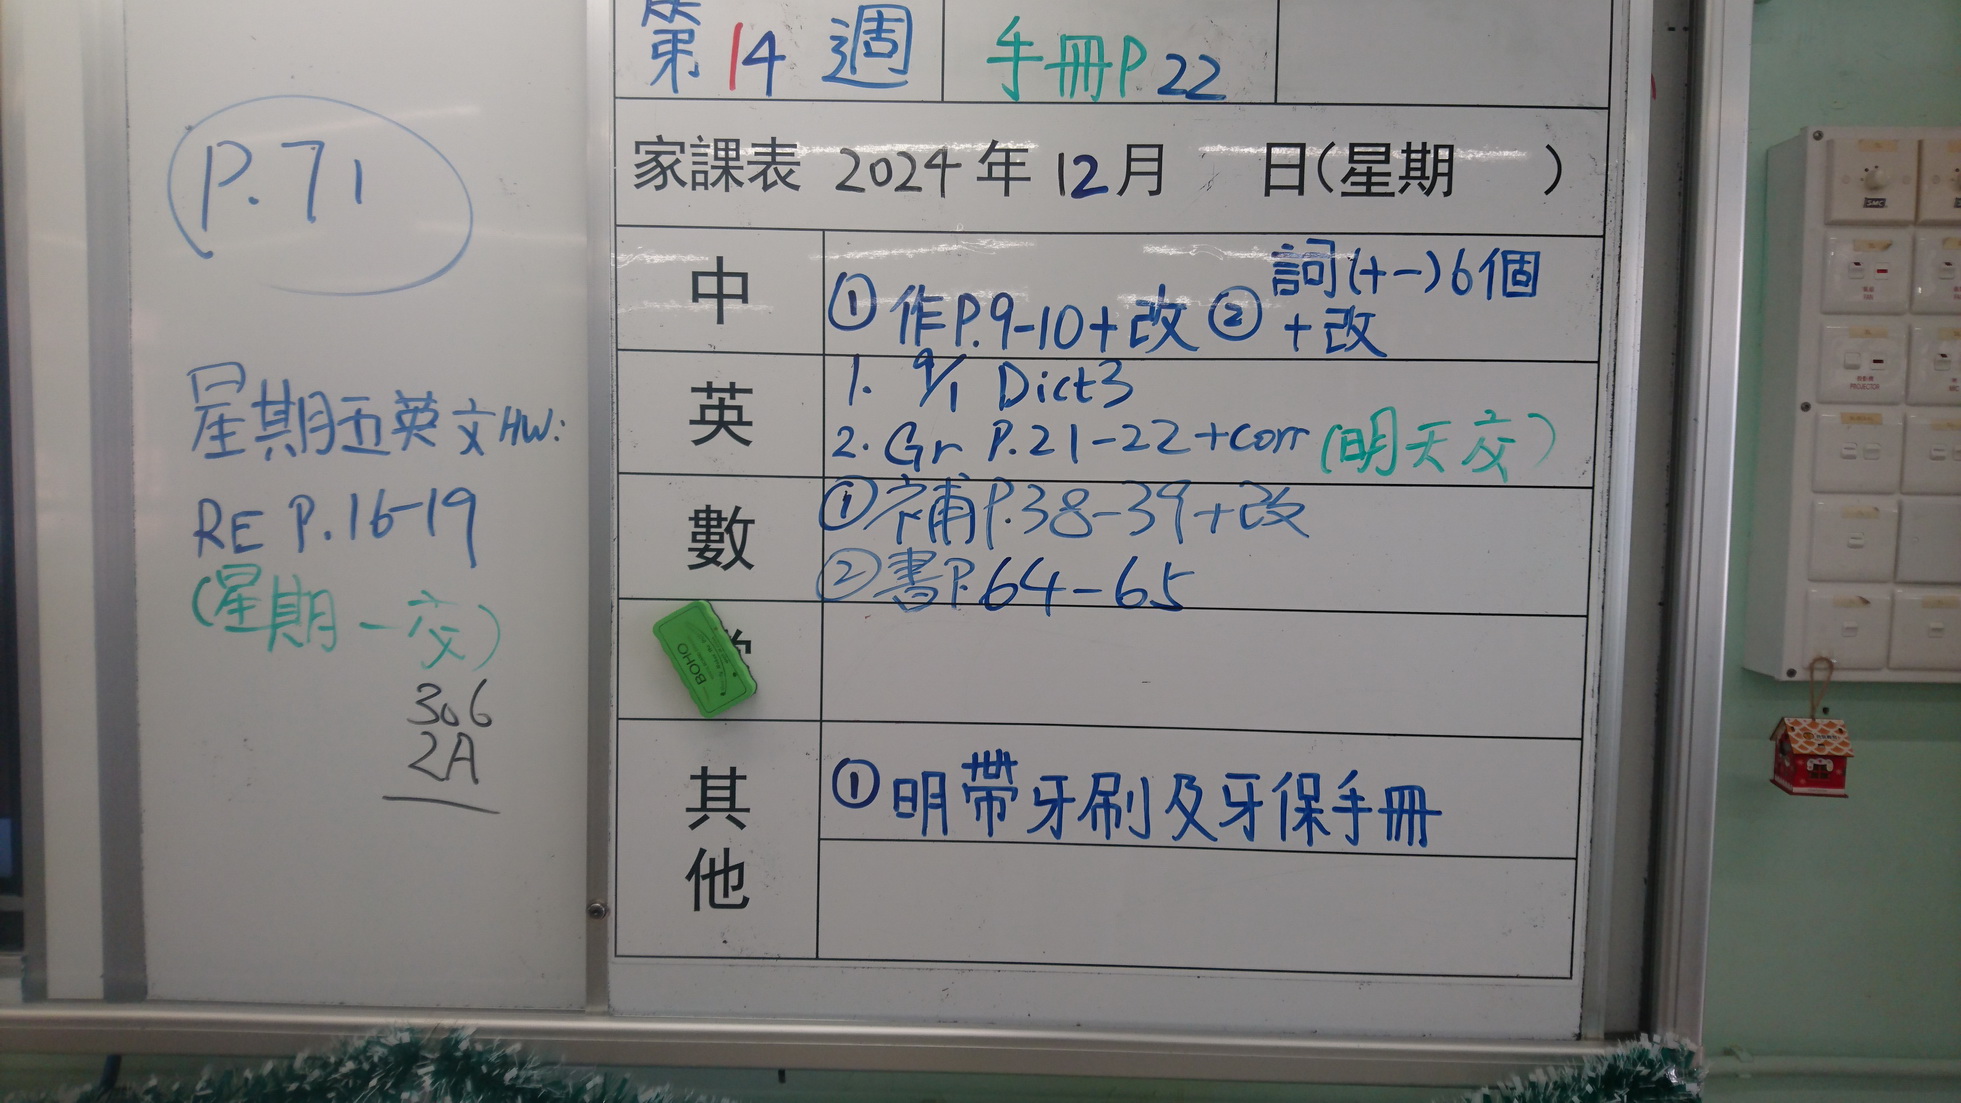 P.71
星期五英文HW:
RE P.16-19
(星期一交)
306
2A
第14週
手冊P.22
家課表 2024年12月 日(星期 )
中
①作P.9-10+改 ②詞(十一)6個
+改
英
1. 9/1 Dict3
2. Gr P.21-22+corr (明天交)
數
①補P.38-39+改
②書P.64-65
BOHO
其他
①明帶牙刷及牙保手冊
SMC
PROJECTOR